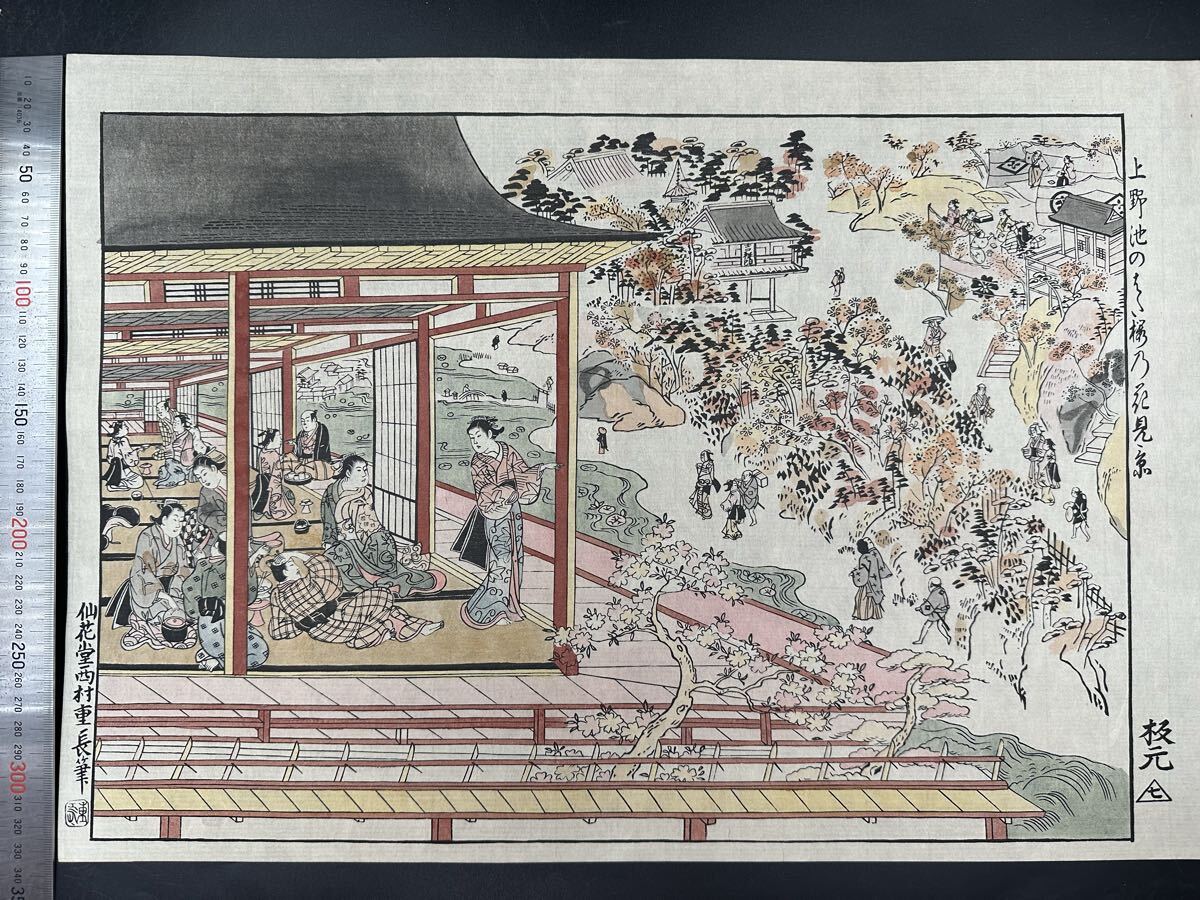 上野池のはた桜乃花見京
仙花堂西村重長筆
板元
七
10
20
30
40
50
60
70
80
90
100
110
120
130
140
150
160
170
180
190
200
210
220
230
240
250
260
270
280
290
300
310
320
330
340
35